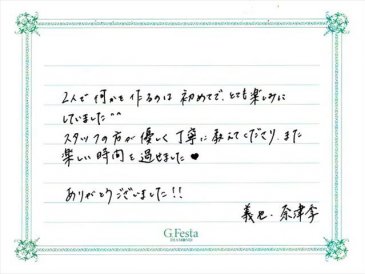 2人で何かを作るのは初めてで、とても楽しみに
していました^^
スタッフの方が優しく丁寧に教えてくださり、また
楽しい時間を過せました♥
ありがとうございました!!
義也・奈津季
G.Festa
DIAMOND